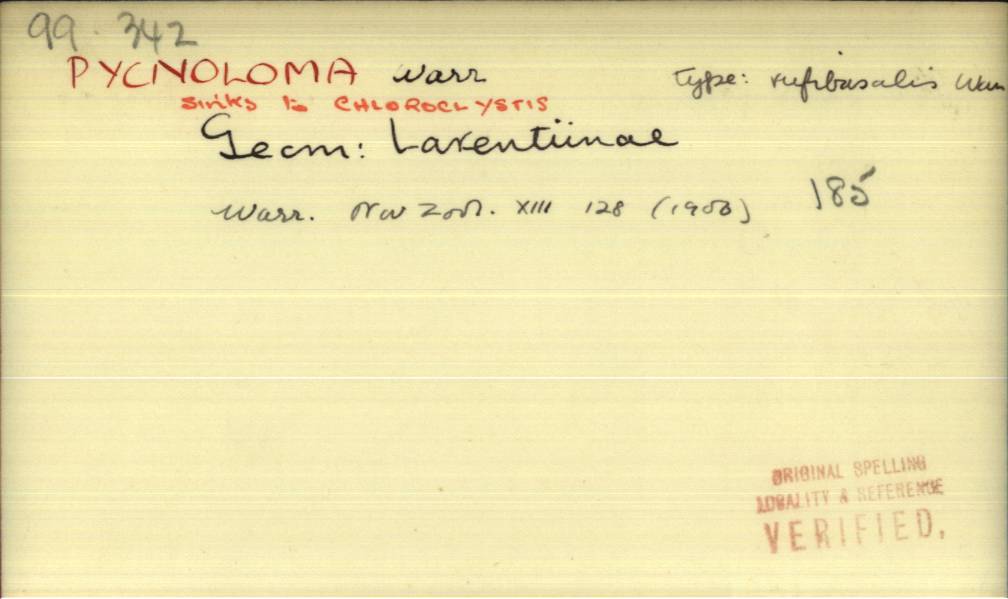 99.342
PYCNOLOMA Warr type: rufibasalis Warr
sinks to CHLOROCLYSTIS
Geom: Larentiinae
Warr. Nov Zool. XIII 128 (1906) 185
ORIGINAL SPELLING
LOCALITY & REFERENCE
VERIFIED.